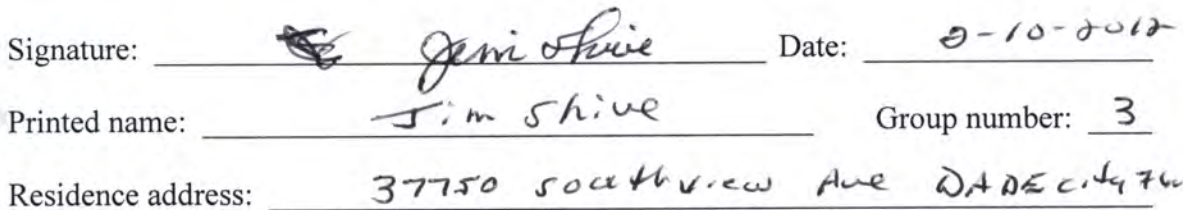 Signature: Jim Shive Date: 2-10-2012
Printed name: Jim Shive Group number: 3
Residence address: 37750 southview Ave DADE city